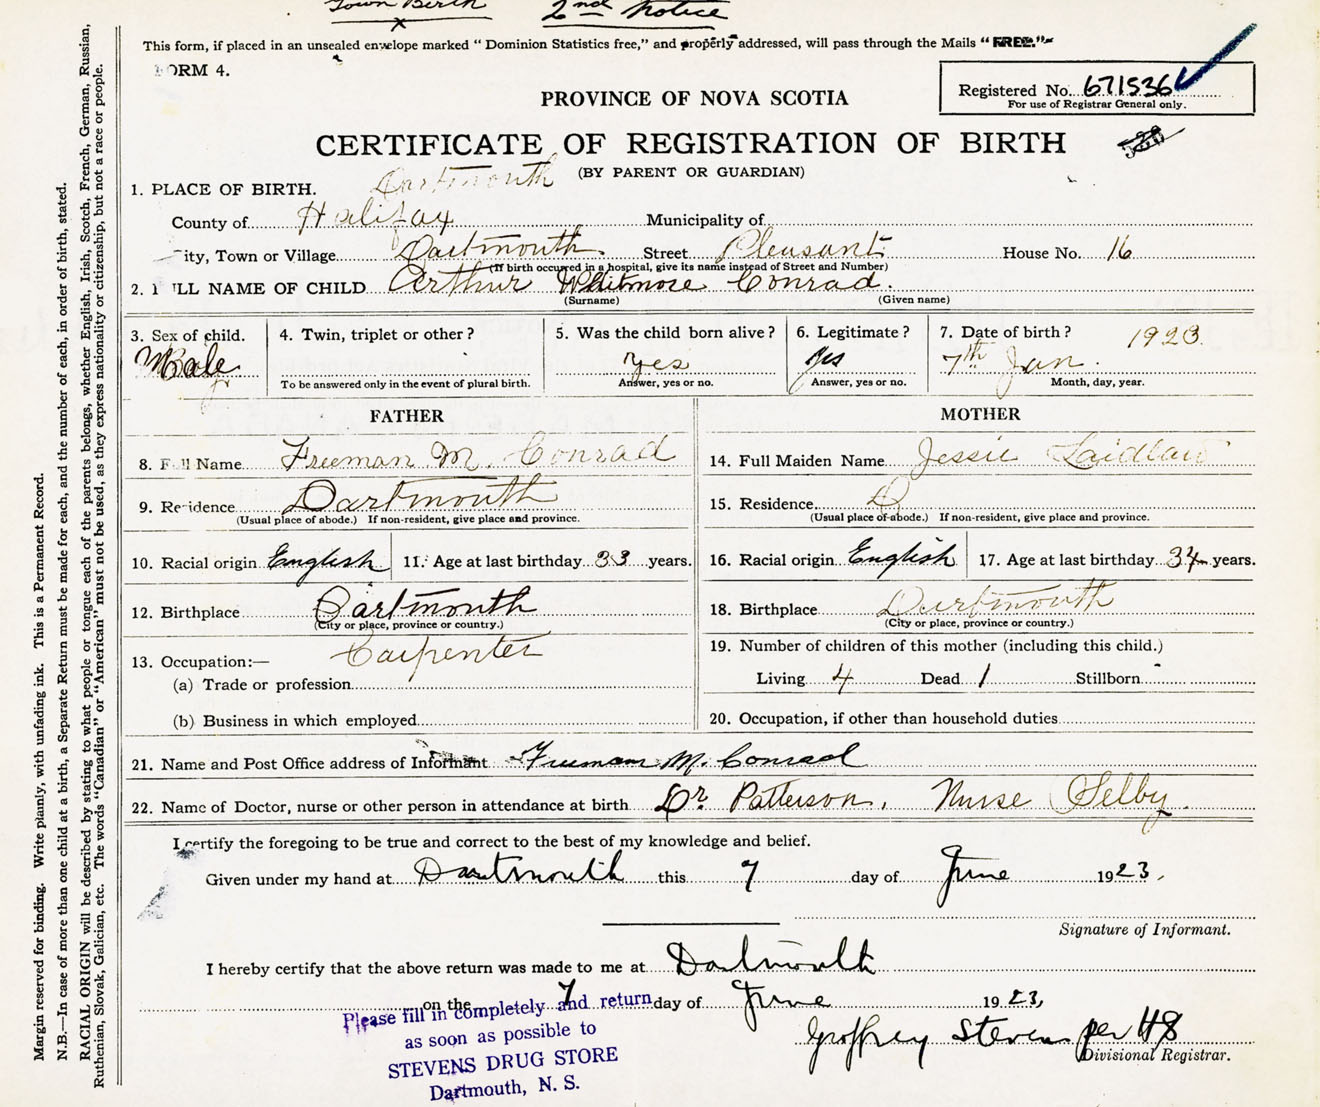 Town Birth 2nd Notice
This form, if placed in an unsealed envelope marked "Dominion Statistics free," and properly addressed, will pass through the Mails "FREE."
FORM 4.
Registered No. 671536
For use of Registrar General only.
PROVINCE OF NOVA SCOTIA
CERTIFICATE OF REGISTRATION OF BIRTH
(BY PARENT OR GUARDIAN)
1. PLACE OF BIRTH. Dartmouth
County of Halifax Municipality of
City, Town or Village Dartmouth Street Pleasant House No. 16
(If birth occurred in a hospital, give its name instead of Street and Number)
2. FULL NAME OF CHILD Arthur Whitmore Conrad.
(Surname) (Given name)
3. Sex of child. 4. Twin, triplet or other? 5. Was the child born alive? 6. Legitimate? 7. Date of birth? 1923.
Male yes yes 7th Jan.
To be answered only in the event of plural birth. Answer, yes or no. Answer, yes or no. Month, day, year.
FATHER MOTHER
8. Full Name Freeman M. Conrad 14. Full Maiden Name Jessie Laidlaw
9. Residence Dartmouth 15. Residence D
(Usual place of abode.) If non-resident, give place and province. (Usual place of abode.) If non-resident, give place and province.
10. Racial origin English 11. Age at last birthday 33 years. 16. Racial origin English 17. Age at last birthday 34 years.
12. Birthplace Dartmouth 18. Birthplace Dartmouth
(City or place, province or country.) (City or place, province or country.)
13. Occupation:— Carpenter 19. Number of children of this mother (including this child.)
(a) Trade or profession Living 4 Dead 1 Stillborn -
(b) Business in which employed 20. Occupation, if other than household duties
21. Name and Post Office address of Informant Freeman M. Conrad
22. Name of Doctor, nurse or other person in attendance at birth Dr. Patterson, Nurse Selby.
I certify the foregoing to be true and correct to the best of my knowledge and belief.
Given under my hand at Dartmouth this 7 day of June 1923.
Signature of Informant.
I hereby certify that the above return was made to me at Dartmouth
on the 7 day of June 1923,
Geoffrey Stevens per HS
Divisional Registrar.
Please fill in completely and return
as soon as possible to
STEVENS DRUG STORE
Dartmouth, N. S.
Margin reserved for binding. Write plainly, with unfading ink. This is a Permanent Record.
N.B.—In case of more than one child at a birth, a Separate Return must be made for each, and the number of each, in order of birth, stated.
RACIAL ORIGIN will be described by stating to what people or tongue each of the parents belongs, whether English, Irish, Scotch, French, German, Russian,
Ruthenian, Slovak, Galician, etc. The words "Canadian" or "American" must not be used, as they express nationality or citizenship, but not a race or people.